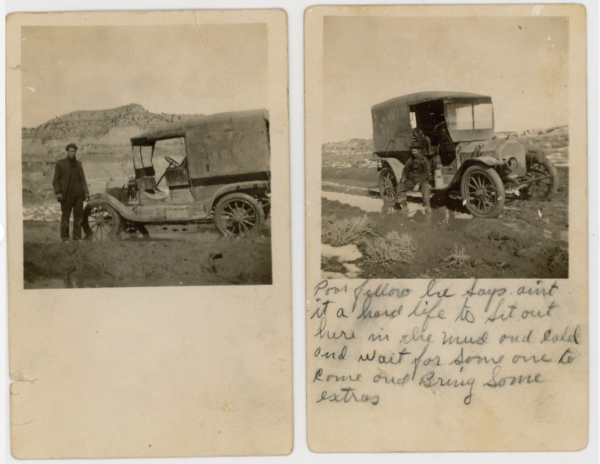 Poor fellow he says aint
it a hard life to sit out
here in the mud and cold
and wait for some one to
come and Bring Some
extras